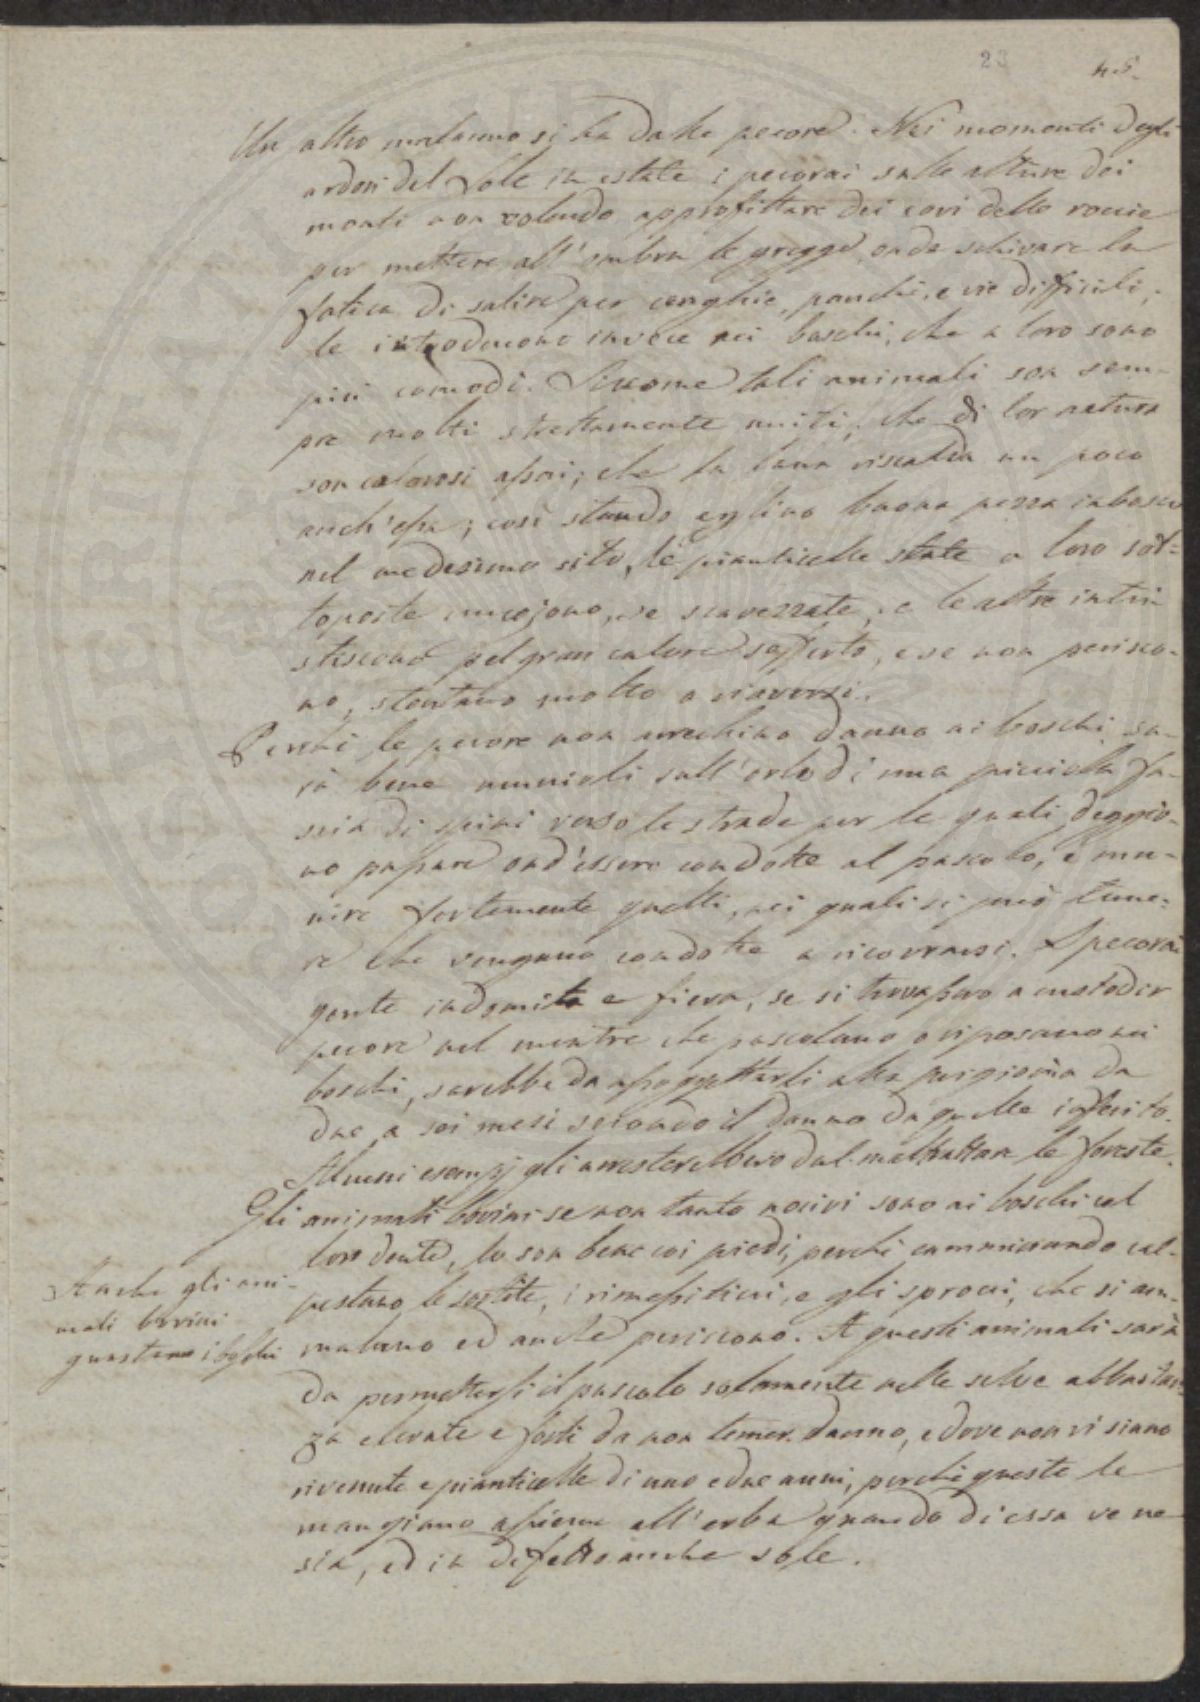 23 45.
Un altro malanno si ha dalle pecore. Nei momenti degli
ardori del Sole in estate i pecorai sulle alture dei
monti non volendo approfittare dei covi delle roccie
per mettere all'ombra le gregge, onde schivare la
fatica di salire per cenghie, panchi, e vie difficili,
le introducono invece nei boschi, che a loro sono
più comodi. Siccome tali animali son sem-
pre molti strettamente uniti; che di lor natura
son calorosi assai; che la lana riscalda un poco
anch'essa; così stando eglino buona pezza in bosco
nel medesimo sito, le pianticelle state a loro sot-
toposte muojono, se scavezzate, e le altre intri-
stiscono pel gran calore sofferto, e se non perisco-
no, stentano molto a riaversi.
Perchè le pecore non arrechino danno ai boschi sa-
rà bene munirli sull'orlo di una picciola fa-
scia di spini verso le strade per le quali deggio-
no passare ond'essere condotte al pascolo, e mu-
nire fortemente quelli, nei quali si può teme-
re che vengano condotte a ricovrarsi. I pecorai
gente indomita e fiera, se si trovassero a custodir
pecore nel mentre che pascolano o riposano nei
boschi, sarebbe da assoggettarli alla prigionia da
due a sei mesi secondo il danno da quelle inferito.
Alcuni esempj gli arresterebbero dal maltrattare le foreste.
Gli animali bovini se non tanto nocivi sono ai boschi col
loro dente, lo son bene coi piedi, perchè camminando cal-
pestano le sortite, i rimessiticci, e gli sprocci, che si am-
malano ed anche periscono. A questi animali sarà
da permettersi il pascolo solamente nelle selve abbastan-
za elevate e forti da non temer danno, e dove non vi siano
rivenute e pianticelle di uno e due anni, perchè queste le
mangiano assieme all'erba quando di essa ve ne
sia, ed in difetto anche sole.
Anche gli ani-
mali bovini
guastano i boschi